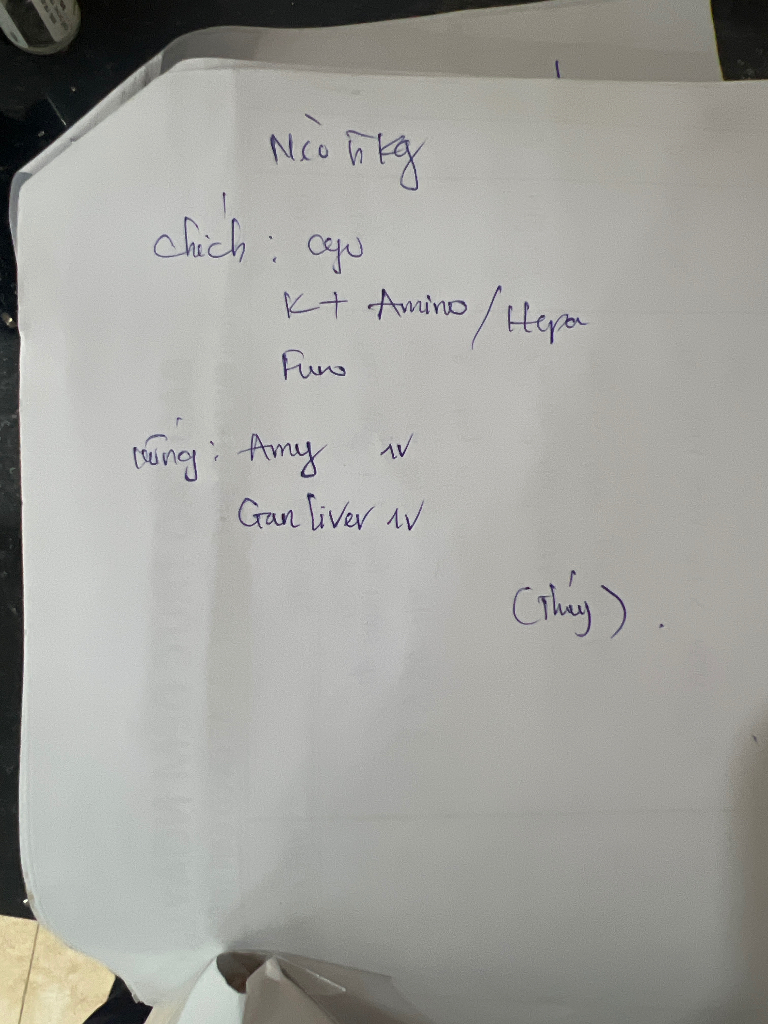 Mèo 5 kg
chích: oxy
K + Amino / Hepa
Furo
uống: Amy 1v
Gan liver 1v
(Thúy).